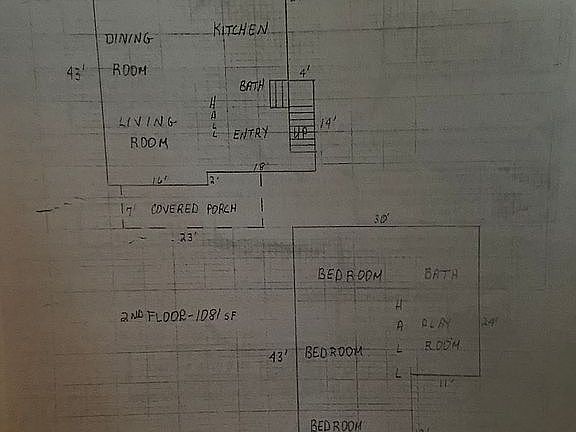 KITCHEN
DINING
ROOM
43'
4'
BATH
HALL
LIVING
ROOM
ENTRY
UP
14'
18'
2'
7'
COVERED PORCH
23'
30'
BEDROOM
BATH
2ND FLOOR-1081 SF
HALL
PLAY
ROOM
24'
43'
BEDROOM
11'
BEDROOM